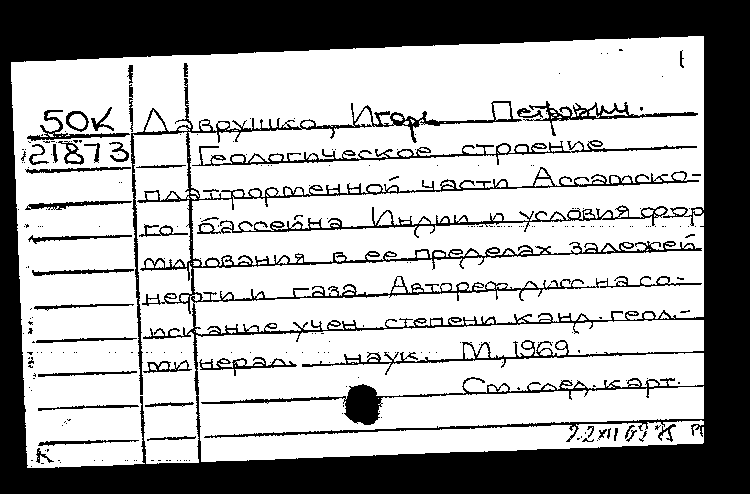 1
50К Лаврушко, Игорь Петрович.
21873 Геологическое строение
платформенной части Ассамско-
го бассейна Индии и условия фор
мирования в ее пределах залежей
нефти и газа. Автореф. дисс. на со-
искание учен. степени канд. геол.-
минерал. наук. М., 1969.
См. след. карт.
22 XII 69
К